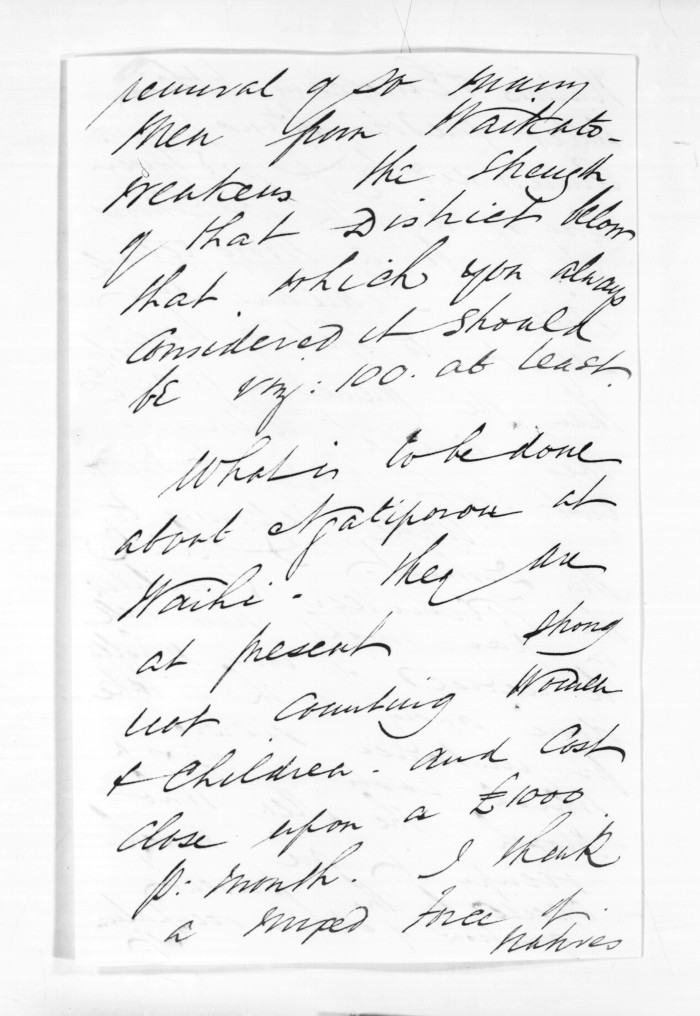 removal of so many
men from Waikato -
weakens the strength
of that District below
that which you always
considered it should
be viz: 100. at least.
What is to be done
about Ngatiporou at
Waihi - they are
at present strong
not counting Women
& Children. and cost
close upon a £1000
p: month. I think
a mixed force of
natives